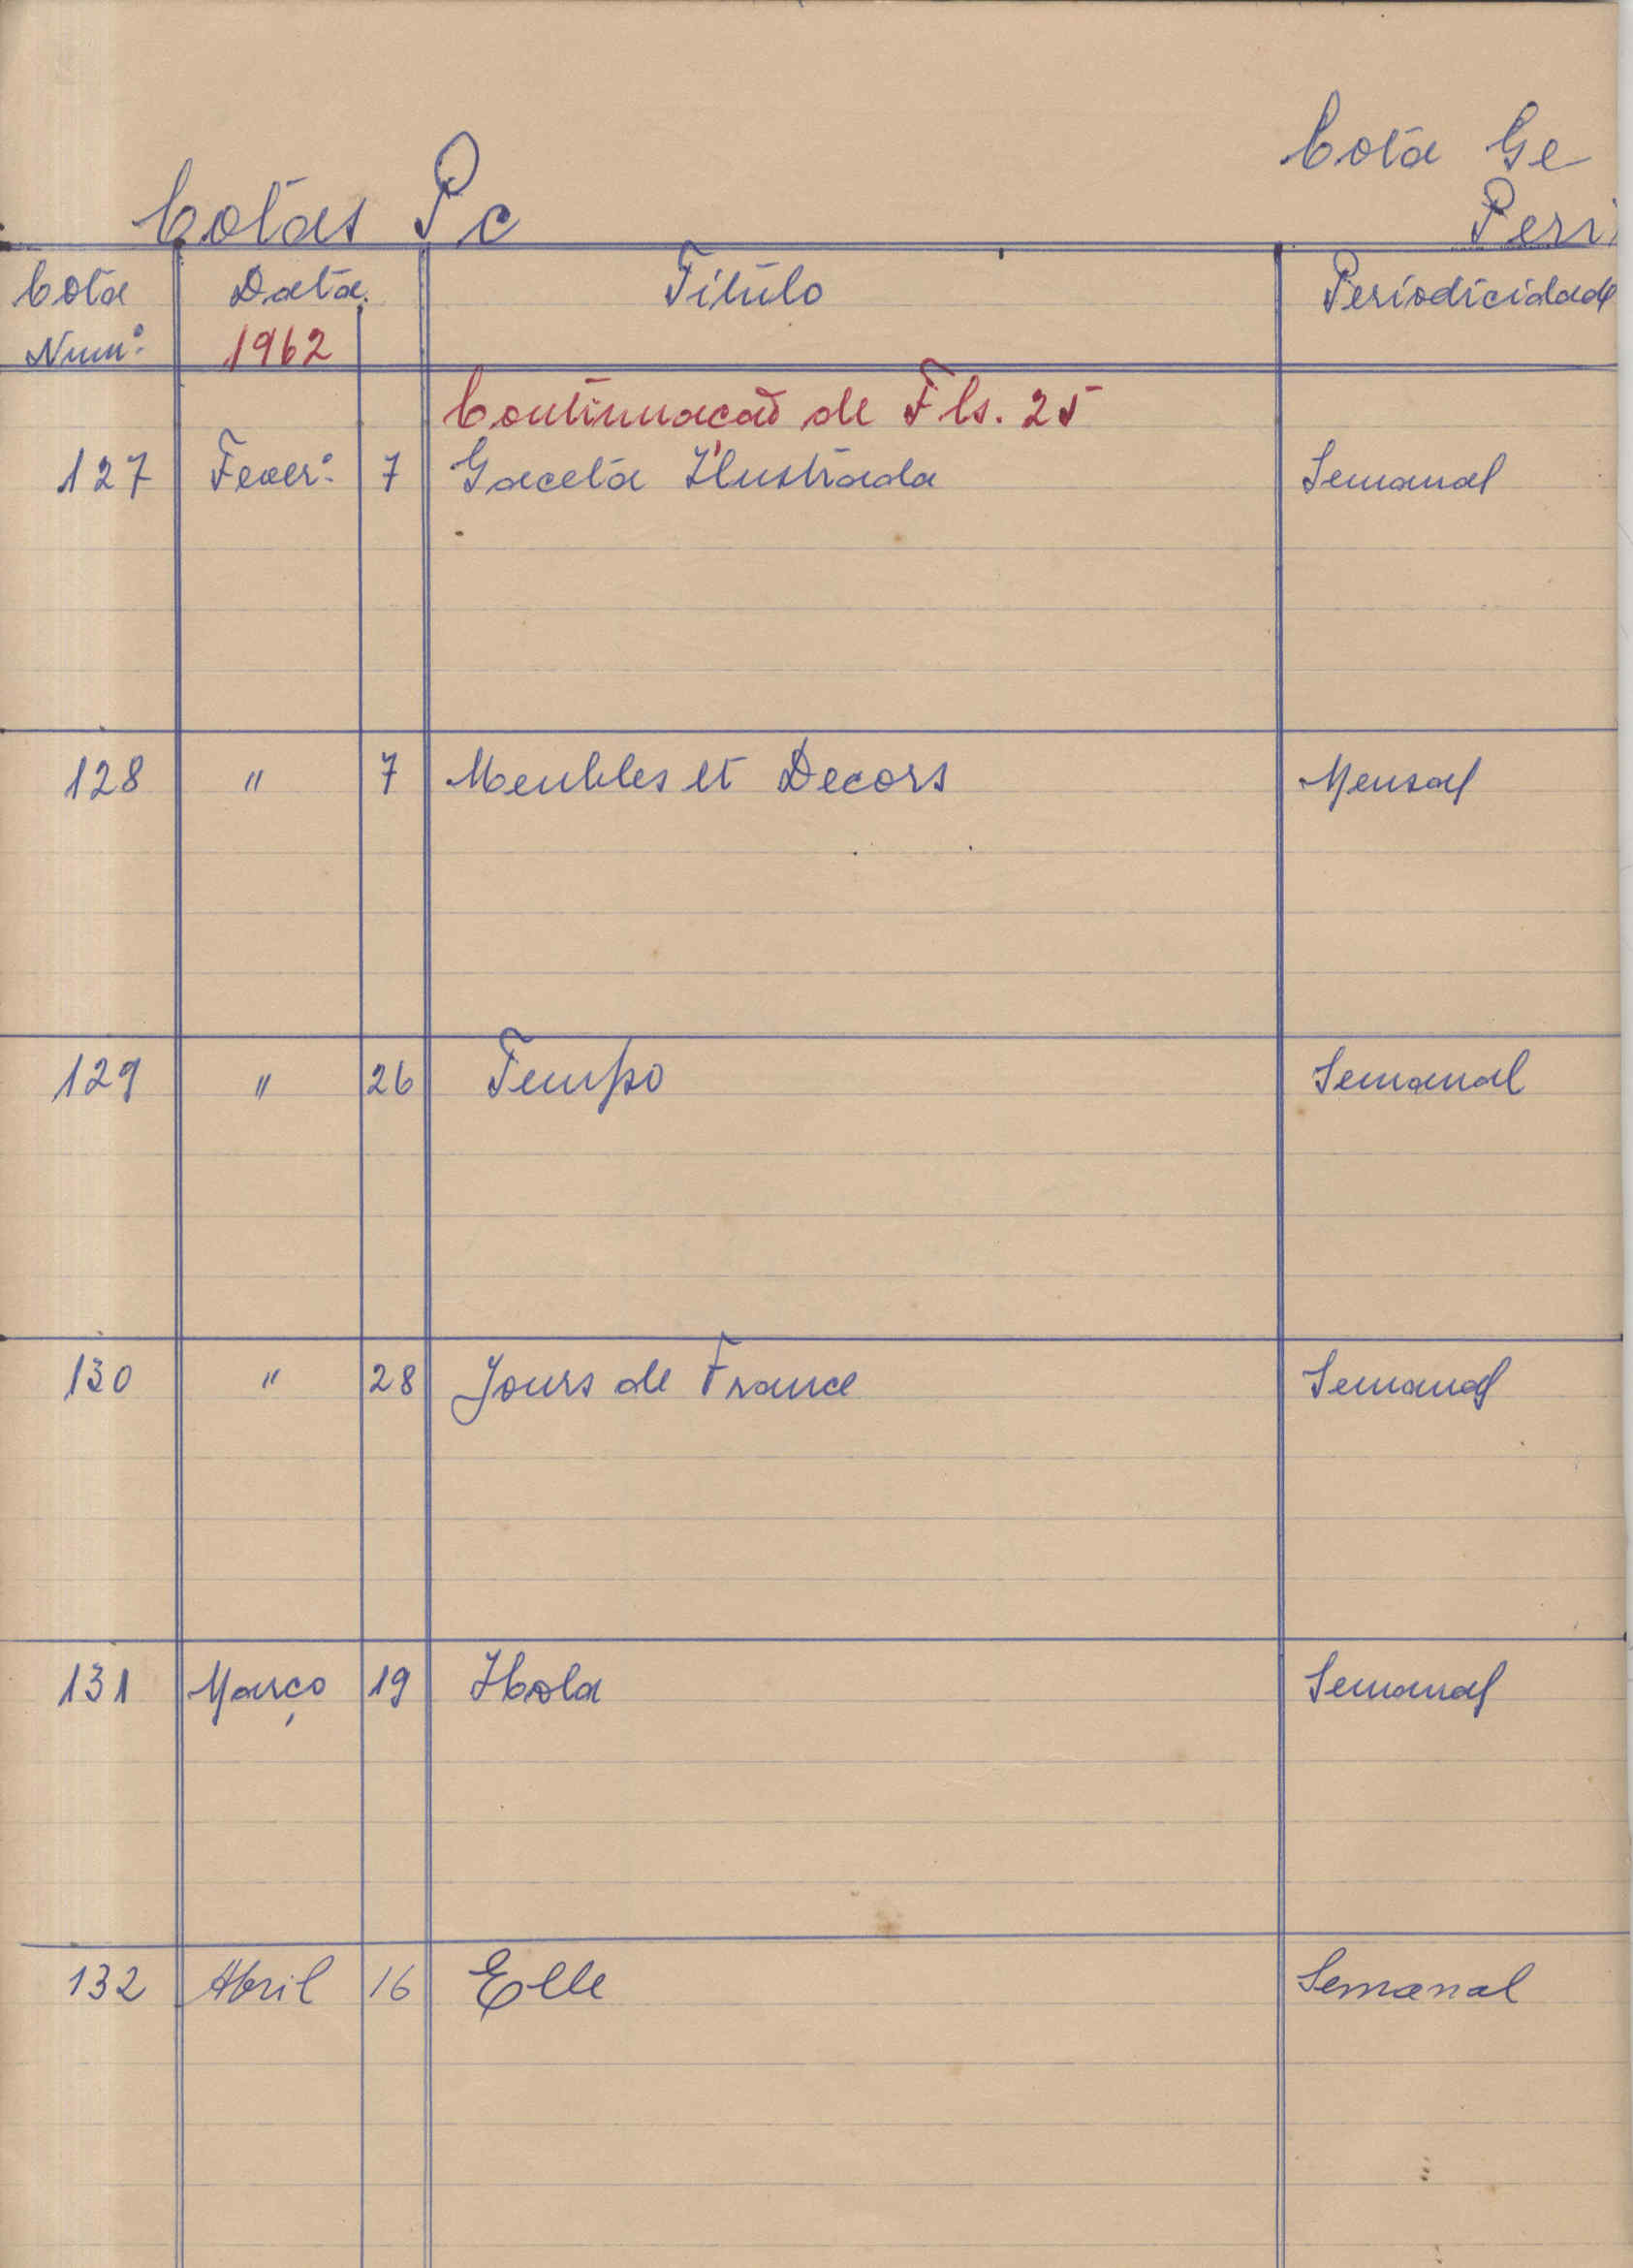 Cota Ge
Cotas Pc Peri
Cota Data Titulo Periodicidade
Num.º 1962
Continuacaõ de Fls. 25
127 Fever.º 7 Gaceta Ilustrada Semanal
128 " 7 Meubles et Decors Mensal
129 " 26 Tempo Semanal
130 " 28 Jours de France Semanal
131 Março 19 Hola Semanal
132 Abril 16 Elle Semanal